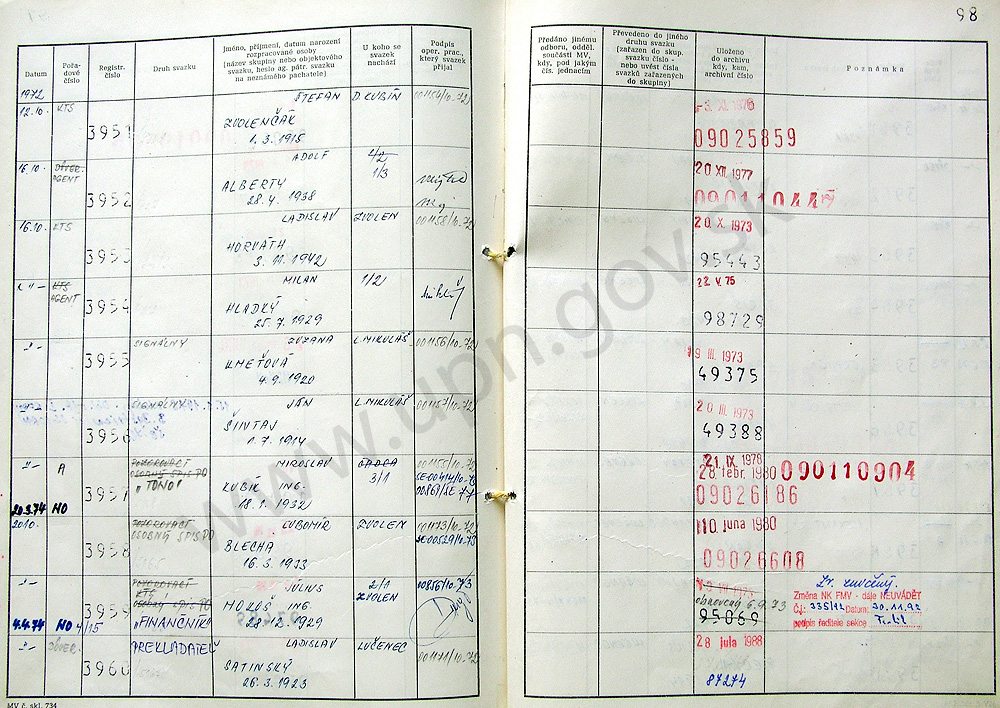 98
Datum
Pořa-
dové
číslo
Registr.
číslo
Druh svazku
Jméno, příjmení, datum narození
rozpracované osoby
(název skupiny nebo objektového
svazku, heslo ag. pátr. svazku
na neznámého pachatele)
U koho se
svazek
nachází
Podpis
oper. prac.,
který svazek
přijal
Předáno jinému
odboru, odděl.
součásti MV,
kdy, pod jakým
čís. jednacím
Převedeno do jiného
druhu svazku
(zařazen do skup.
svazku číslo -
nebo uvést čísla
svazků zařazených
do skupiny)
Uloženo
do archivu
kdy, kam,
archivní číslo
Poznámka
1972
12.10. KTS
3951
ŠTEFAN
ZVOLENČÁK
1.3.1915
D.KUBÍN
001154/10-72
3. XI. 1976
09025859
16.10.
AGENT
3952
ADOLF
ALBERTY
28.4.1938
4/2
1/3
20 XII. 1977
090110447
16.10. KTS
3953
LADISLAV
HORVÁTH
3.11.1942
ZVOLEN
001158/10-72
20 X. 1973
95443
-"- KTS
AGENT
3954
MILAN
HLADKÝ
25.7.1929
1/2
22 V. 75
98729
-"-
3955
SIGNÁLNY
ZUZANA
KMEŤOVÁ
4.9.1920
L.MIKULÁŠ
001156/10-72
19 III. 1973
49375
3956
SIGNÁLNY
JÁN
ŠIINTAJ
1.7.1914
L.MIKULÁŠ
001157/10-72
20 III. 1973
49388
-"- A
20.3.74 NO
3957
POZOROVACÍ
OSOBNÝ SPIS PO
"TÓNO"
MIROSLAV
KUBÍK ING.
18.1.1932
ČADCA
3/1
001155/10-72
21. IX. 1978
28. febr. 1980
090110904
09026186
20.10.
3958
POZOROVACÍ
OSOBNÝ SPIS PO
ĽUBOMÍR
BLECHA
16.3.1933
ZVOLEN
001173/10-72
SE-00529/10-73
10 júna 1980
09026608
-"-
4.4.74 NO 4/15
3959
POZOROVACÍ
KTS
OSOBNÝ SPIS PO
"FINANČNÍK"
JÚLIUS
ING.
28.12.1929
2/1
ZVOLEN
00856/10-73
obnovený 6.9.73
95069
Změna NK FMV - dále NEUVÁDĚT
Č.j.: 335/92 Datum: 30.11.92
podpis ředitele sekce
-"-
3960
PREKLADATEĽ
LADISLAV
SATINSKÝ
26.3.1923
LUČENEC
001171/10-72
28 júla 1988
87274
MV č. skl. 734
www.upn.gov.sk